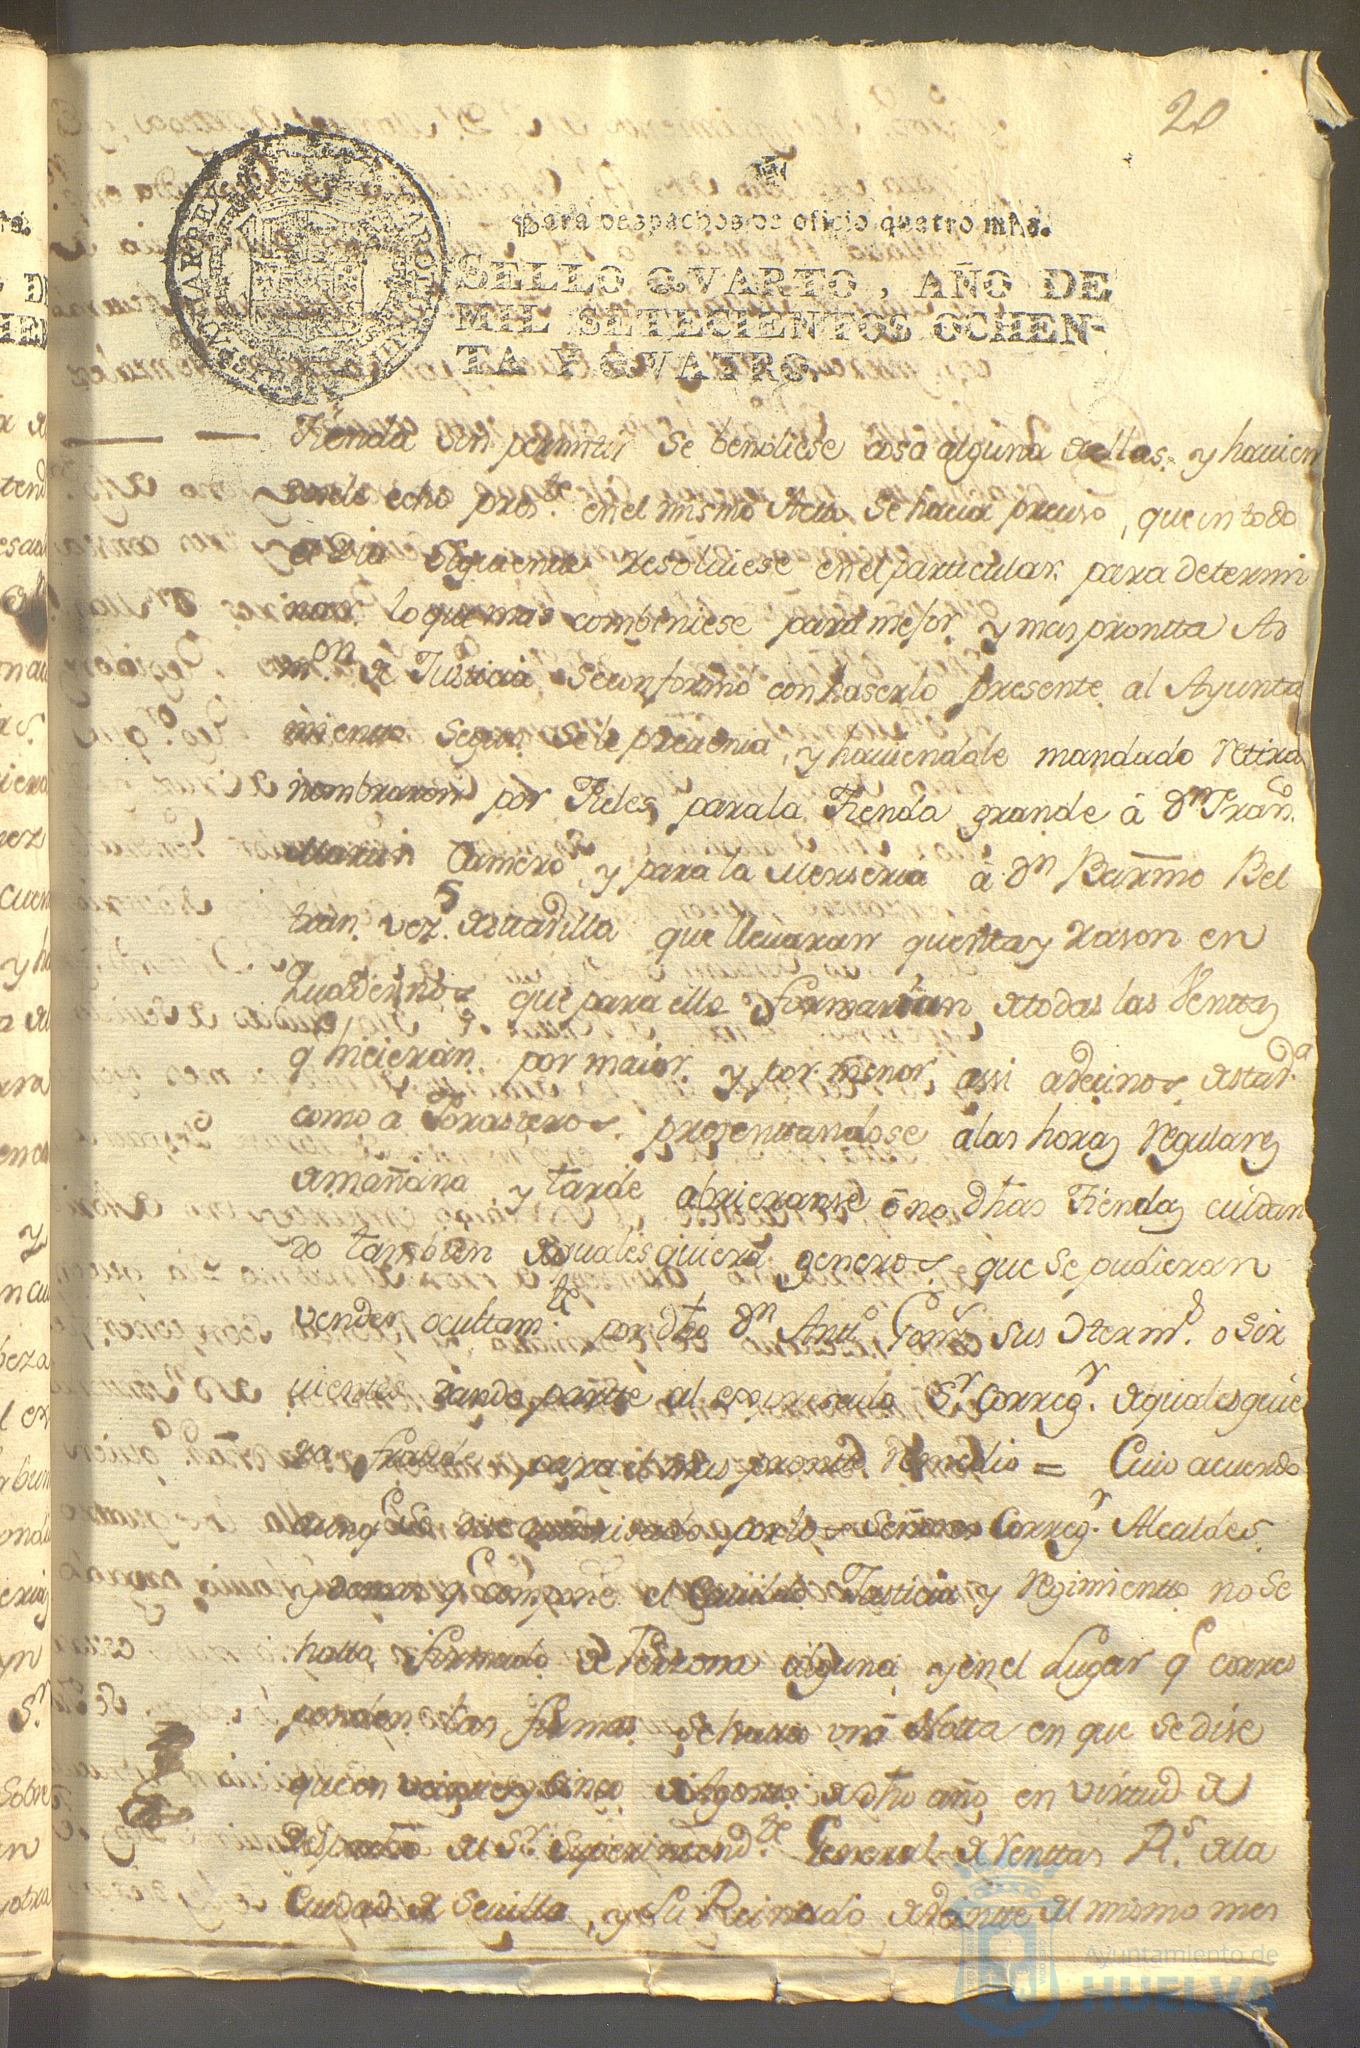 20
Para despachos de oficio quatro mrs.
SELLO QVARTO, AÑO DE
MIL SETECIENTOS OCHEN-
TA Y QVATRO.
Tienda sin permitir se bendiese cosa alguna dellas, y havien
doselo echo pres.te en el mismo Acto se hacia preciso, que en todo
el Dia siguiente resolviese en el particular para determi
nar lo que mas combeniese para mejor y mas prontta Ad
m.on de Justicia se conformo con haserlo presente al Ayunta
miento segun se le prevenia, y haviendole mandado retirar
nombraron por Fieles para la Tienda grande â Dn Fran.co
Martin Camero, y para la Merseria â Dn Barmo Bel
tran vez.s de esta Villa que llevaran quenta y rason en
Quadernos que para ello formarian de todas las Venttas
q hicieran por maior y por menor, assi a vecinos de esta v.a
como â Forasteros presentandose a las horas regulares
de mañana y tarde abrieranse ô no dhas Tiendas cuidan
do tambien de qualesquiera generos que se pudieran
vender ocultam.te por dho Dn Antt.o Gomz sus Herm.s o Sir
vientes dando partte al expresado Sr Correg.r de qualesquie
ra fraude para el mas prontto remedio = Cuio acuerdo
aunq esta autorisado por los Señores Correg.r Alcaldes
y demas q compone el Cavildo Justicia y regimientto no se
halla firmado de Perzona alguna y en el Lugar q corres
ponden las firmas se halla una Notta en que se dise
que en veinte y cinco de Agosto de dho año en virtud de
despacho del Sr Superintend.te General de Renttas R.s de la
Ciudad de Sevilla, y su Reinado de veintte del mismo mes
Ayuntamiento de
HUELVA